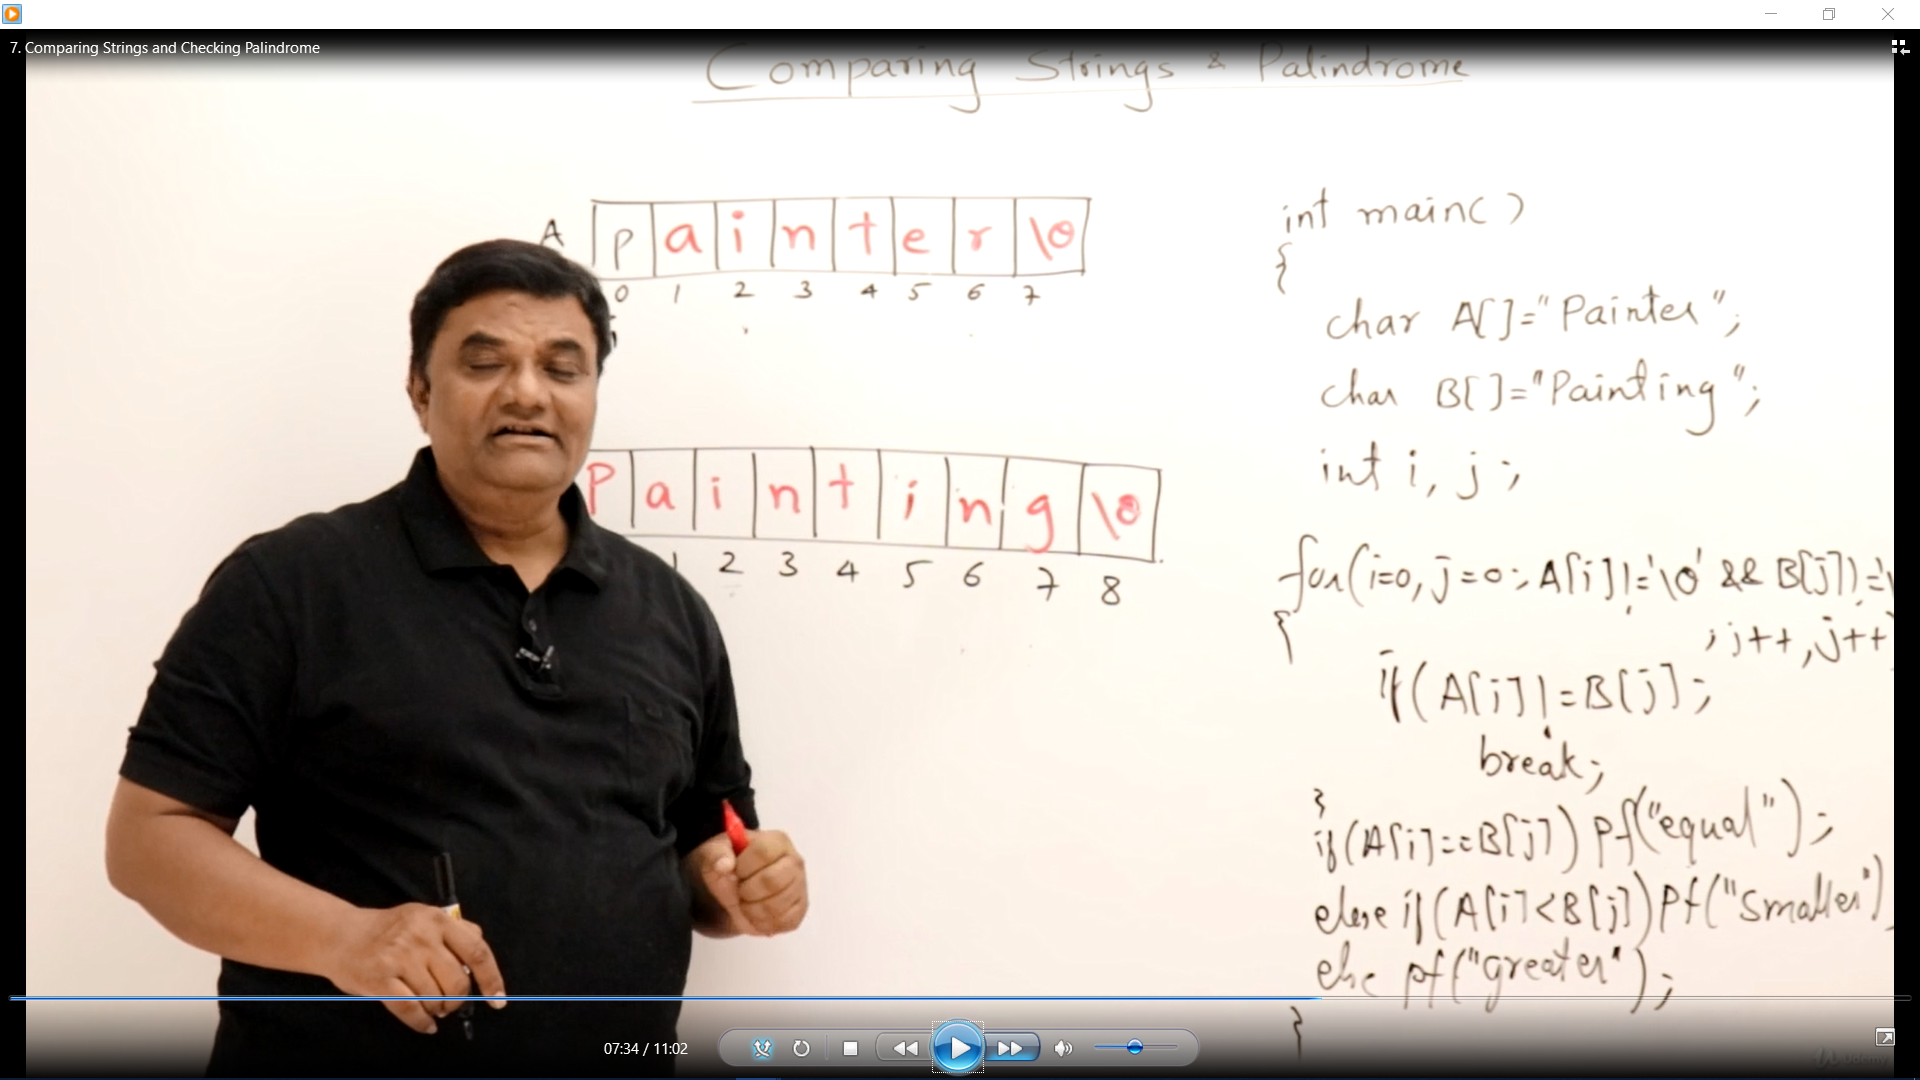 7. Comparing Strings and Checking Palindrome
Comparing Strings & Palindrome
A p a i n t e r \0
0 1 2 3 4 5 6 7
P a i n t i n g \0
1 2 3 4 5 6 7 8
int main( )
{
char A[]="Painter";
char B[]="Painting";
int i, j ;
for(i=0, j=0; A[i]!='\0' && B[j]!='\
; i++, j++
{
if( A[i]!=B[j];
break;
}
if(A[i]==B[j]) pf("equal");
else if(A[i]<B[j]) pf("smaller")
else pf("greater");
}
07:34 / 11:02
Udemy